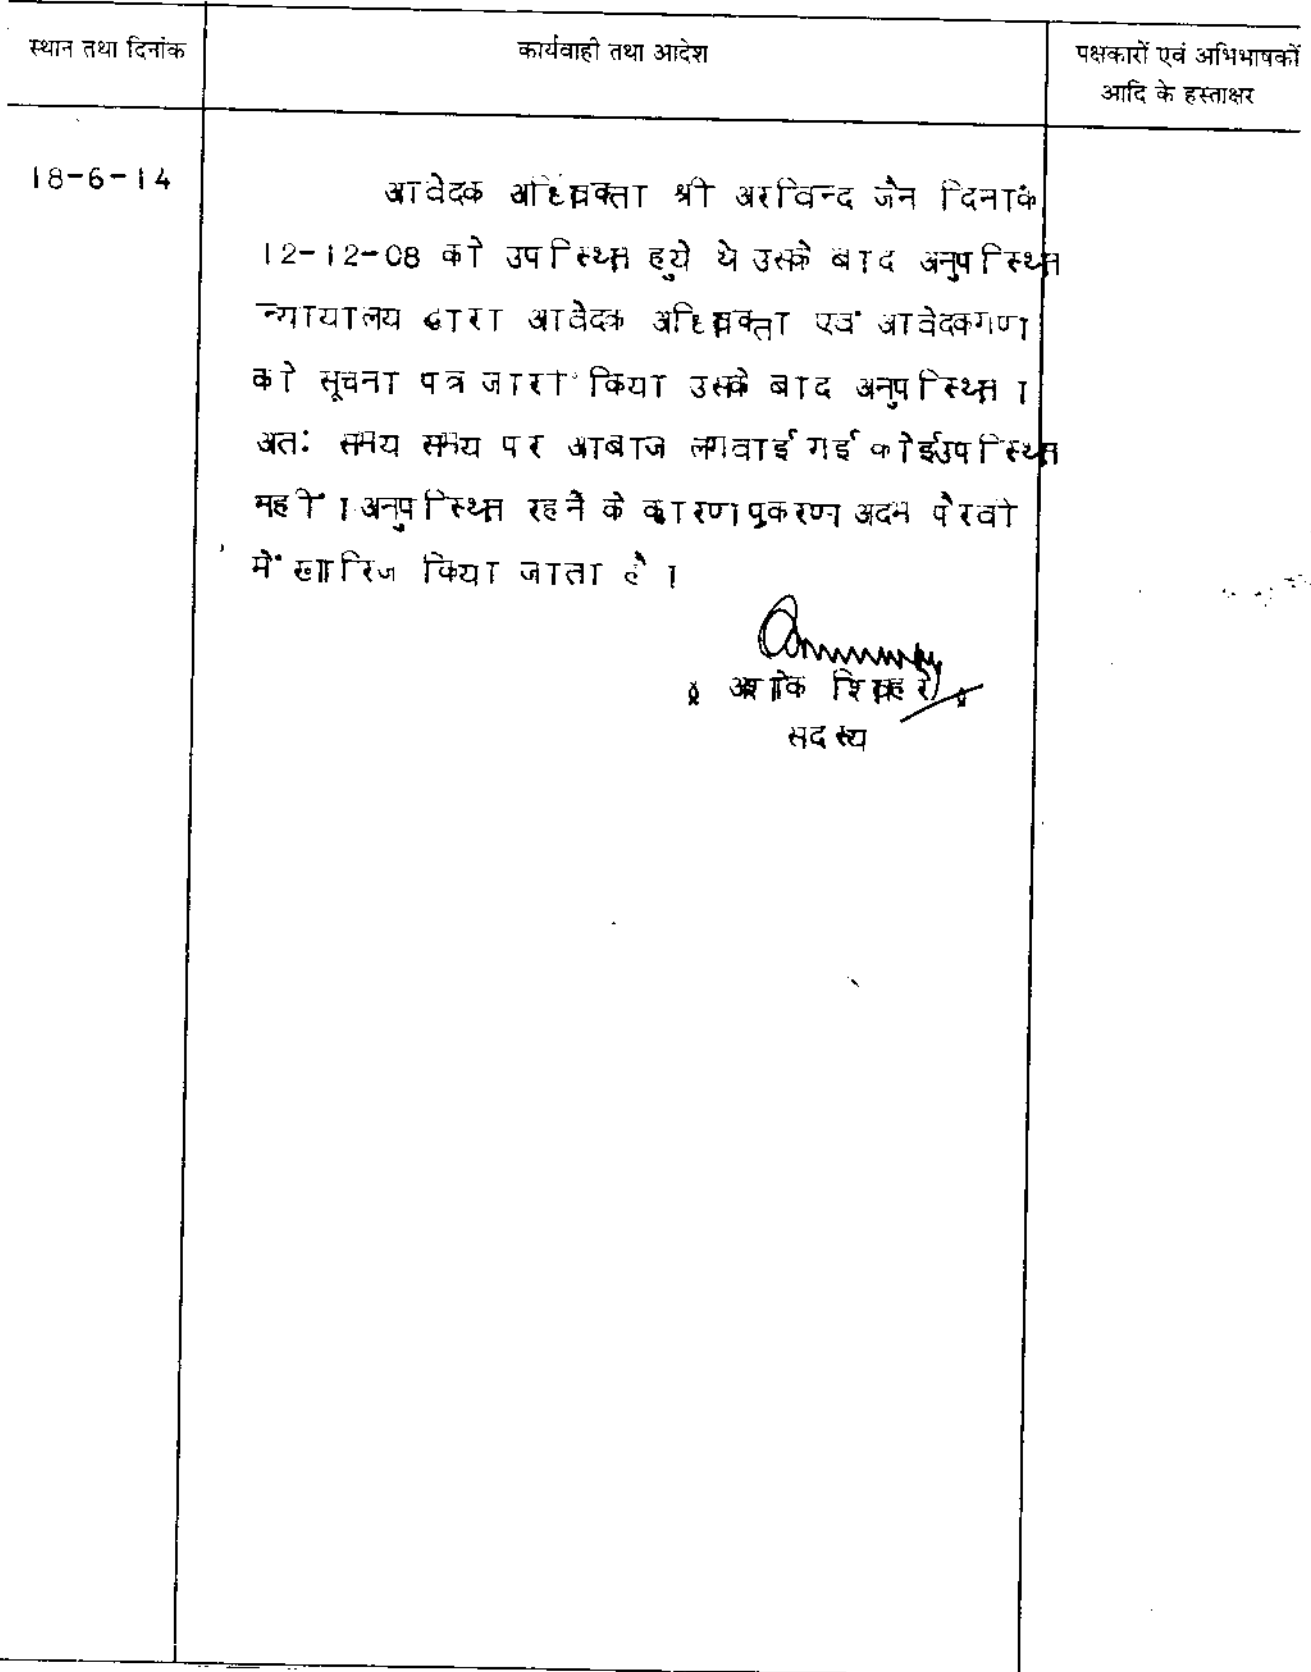 स्थान तथा दिनांक
कार्यवाही तथा आदेश
पक्षकारों एवं अभिभाषकों
आदि के हस्ताक्षर
18-6-14
आवेदक अधिवक्ता श्री अरविन्द जैन दिनांक
12-12-08 को उपस्थित हुये थे उसके बाद अनुपस्थित
न्यायालय द्वारा आवेदक अधिवक्ता एवं आवेदकगण
को सूचना पत्र जारी किया उसके बाद अनुपस्थित ।
अतः समय समय पर आबाज लगवाई गई कोई उपस्थित
नहीं । अनुपस्थित रहने के कारण प्रकरण अदम पैरवी
में खारिज किया जाता है ।
अशोक शिवहरे
सदस्य